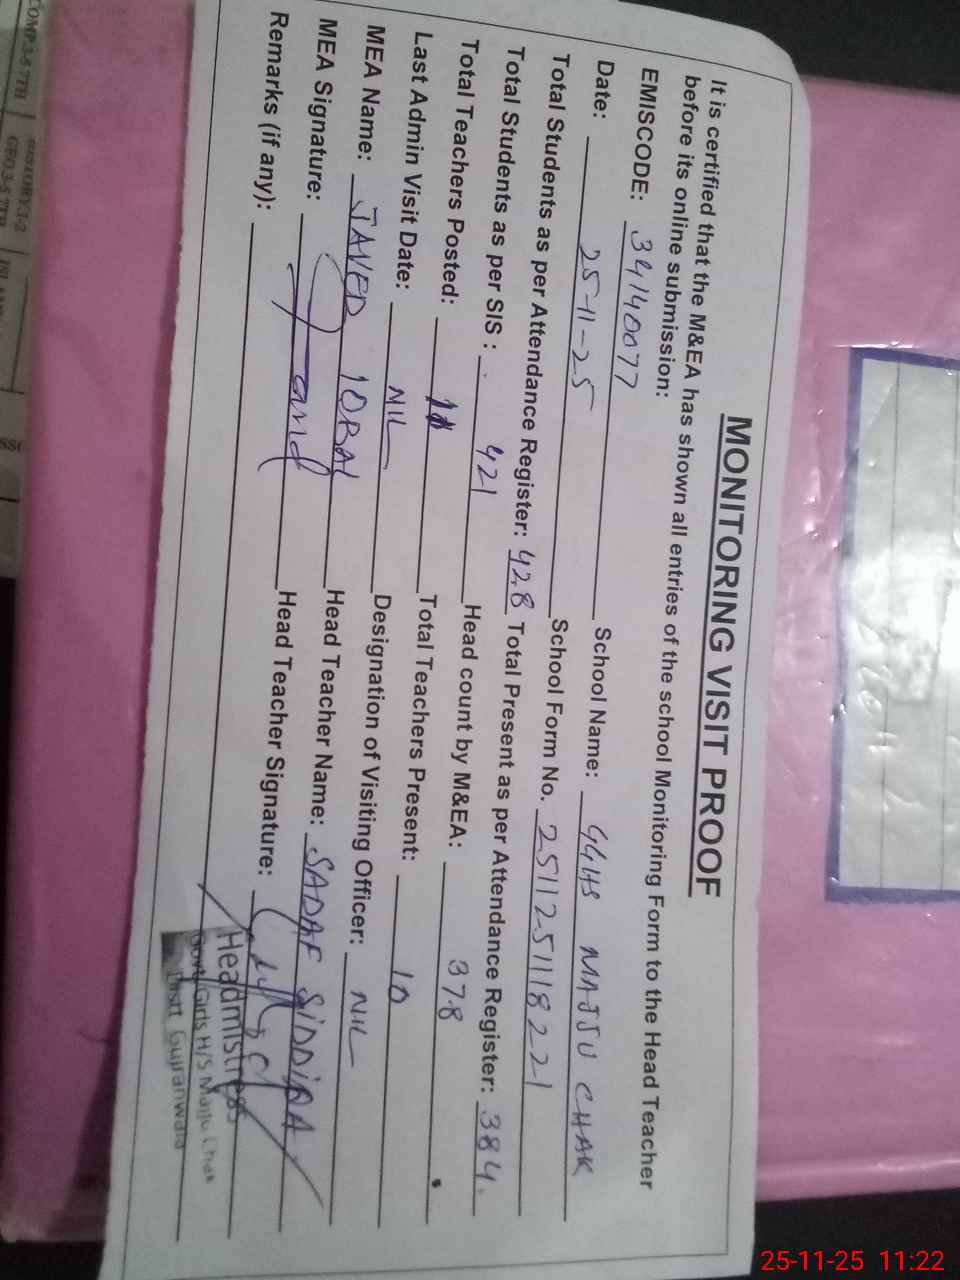 MONITORING VISIT PROOF
It is certified that the M&EA has shown all entries of the school Monitoring Form to the Head Teacher
before its online submission:
EMISCODE: 34140077 School Name: GGHS MAJJU CHAK
Date: 25-11-25 School Form No. 2511251118221
Total Students as per Attendance Register: 428 Total Present as per Attendance Register: 384.
Total Students as per SIS : 421 Head count by M&EA: 378
Total Teachers Posted: 11 Total Teachers Present: 10
Last Admin Visit Date: NIL Designation of Visiting Officer: NIL
MEA Name: JAVED IQBAL Head Teacher Name: SADAF SIDDIQA
MEA Signature: Head Teacher Signature:
Remarks (if any):
Headmistress
Govt Girls H/S Majju Chak
Distt Gujranwala
COMP.3-5 7TH
25-11-25 11:22